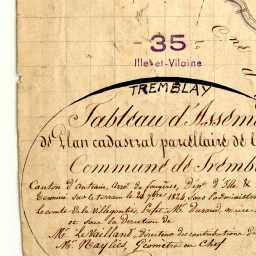 35
Ille-et-Vilaine
TREMBLAY
Tableau d'Assem
du Plan cadastral parcellaire de l
Commune de Trembl
Canton d'Antrain, Arrt de fougères, Dept d'Ille &
Terminé sur le terrain le 1824 sous l'administration
le comte de la Villegontier, Préfet, Mr Durand, maire
et sous la direction de
Mr Le Vaillant, Directeur des contributions
Mr Naylies, Géomètre en Chef